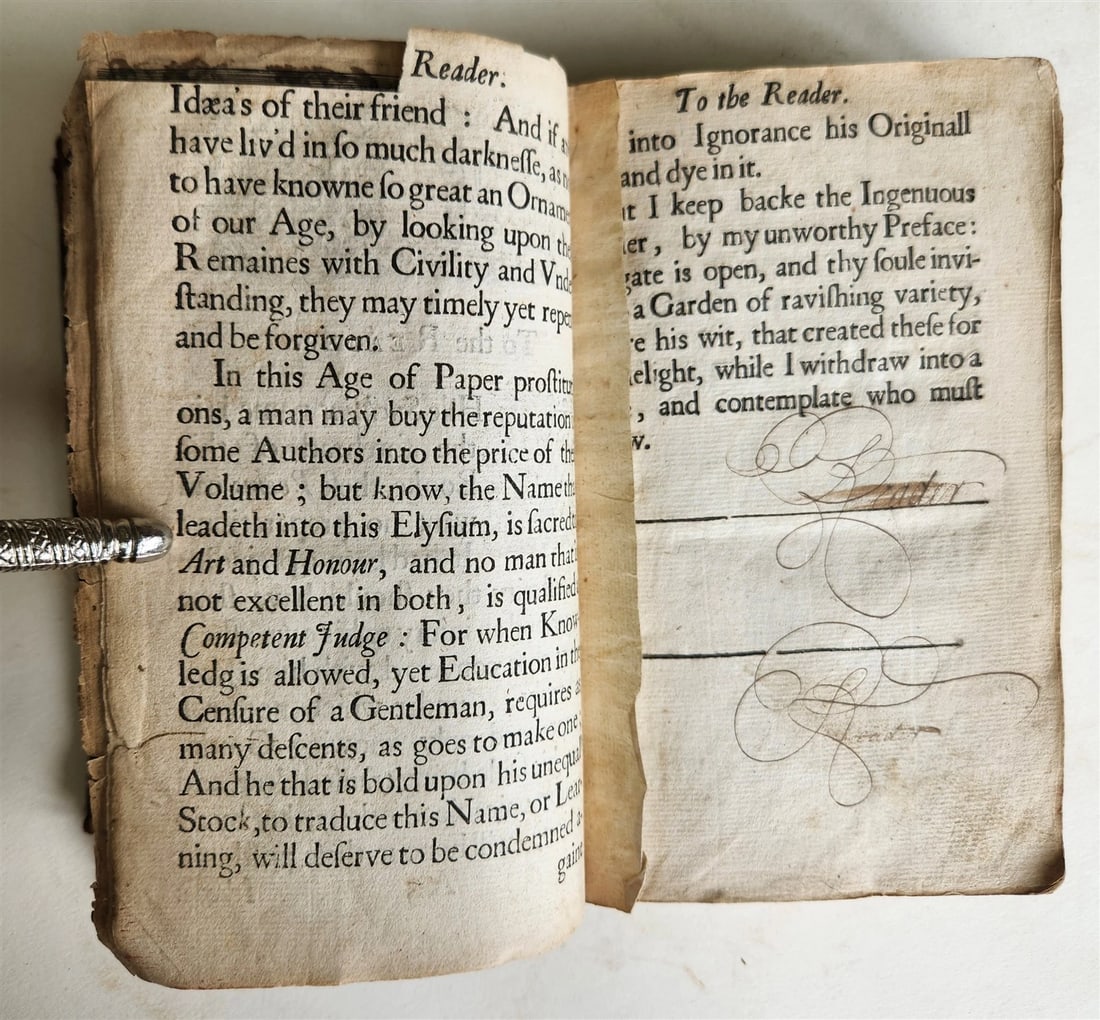 Reader.
Idæa's of their friend : And if
have liv'd in ſo much darkneſſe, as
to have knowne ſo great an Orname
of our Age, by looking upon the
Remaines with Civility and Vnde
ſtanding, they may timely yet repe
and be forgiven.
In this Age of Paper proſtitu
ons, a man may buy the reputation
ſome Authors into the price of the
Volume ; but know, the Name th
leadeth into this Elyſium, is ſacred
Art and Honour, and no man that
not excellent in both, is qualified
Competent Judge : For when Know
ledg is allowed, yet Education in the
Cenſure of a Gentleman, requires as
many deſcents, as goes to make one.
And he that is bold upon his unequal
Stock, to traduce this Name, or Lear-
ning, will deſerve to be condemned a-
gaine
To the Reader.
into Ignorance his Originall
and dye in it.
t I keep backe the Ingenuous
er, by my unworthy Preface:
gate is open, and thy ſoule invi-
a Garden of raviſhing variety,
e his wit, that created theſe for
elight, while I withdraw into a
, and contemplate who muſt
w.
Reader